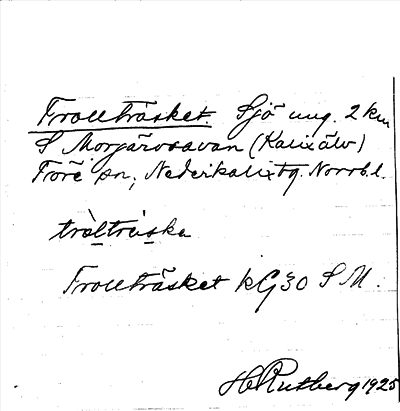 Trollträsket. Sjö ung. 2 km
S Morjärvsavan (Kalixälv)
Töre sn, Nederkalix tg. Norrb. l.
trålträska
Trollträsket kG30 S M.
H Rutberg 1925